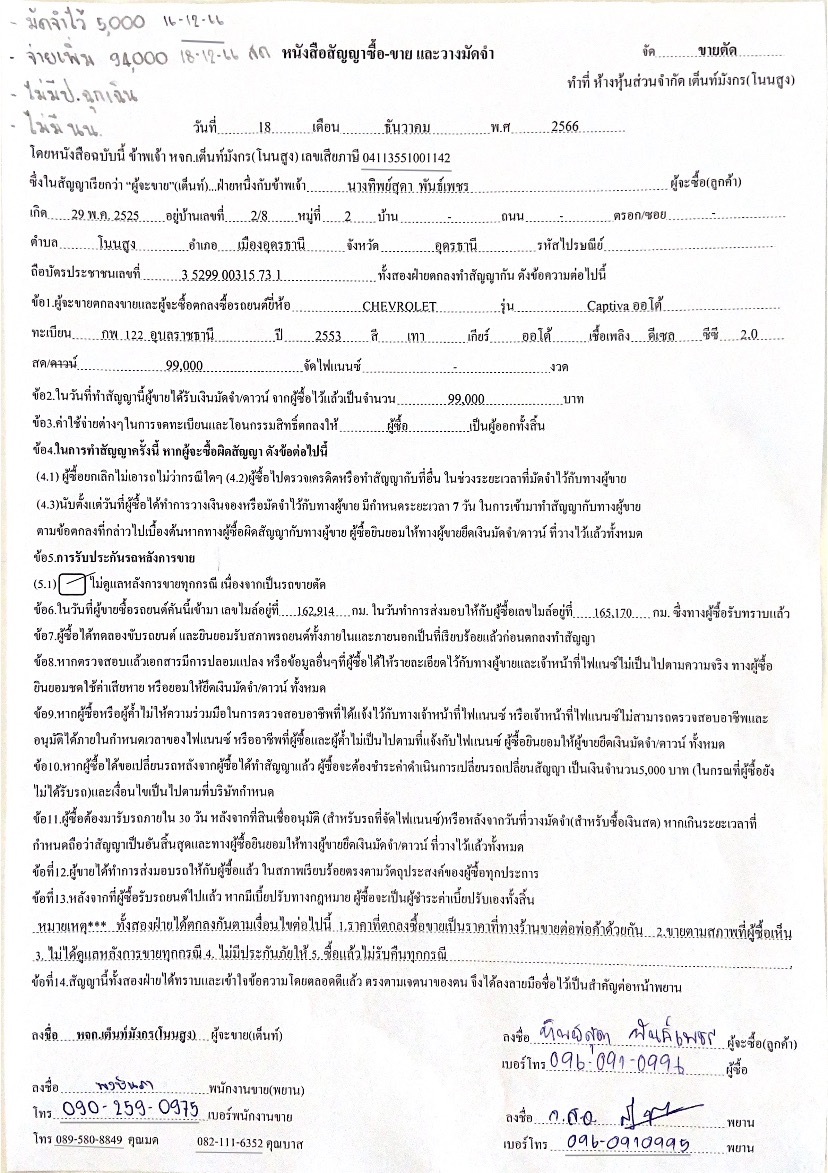 - มัดจำไว้ 5,000 16-12-66
- จ่ายเพิ่ม 94,000 18-12-66 สด
หนังสือสัญญาซื้อ-ขาย และวางมัดจำ
จัด ขายตัด
- ไม่มีป.ฉุกเฉิน
ทำที่ ห้างหุ้นส่วนจำกัด เต็นท์มังกร(โนนสูง)
- ไม่มี นน.
วันที่ 18 เดือน ธันวาคม พ.ศ 2566
โดยหนังสือฉบับนี้ ข้าพเจ้า หจก.เต็นท์มังกร(โนนสูง) เลขเสียภาษี 04113551001142
ซึ่งในสัญญาเรียกว่า "ผู้จะขาย"(เต็นท์)...ฝ่ายหนึ่งกับข้าพเจ้า นางทิพย์สุดา พันธ์เพชร ผู้จะซื้อ(ลูกค้า)
เกิด 29 พ.ค. 2525 อยู่บ้านเลขที่ 2/8 หมู่ที่ 2 บ้าน - ถนน - ตรอก/ซอย -
ตำบล โนนสูง อำเภอ เมืองอุดรธานี จังหวัด อุดรธานี รหัสไปรษณีย์
ถือบัตรประชาชนเลขที่ 3 5299 00315 73 1 ทั้งสองฝ่ายตกลงทำสัญญากัน ดังข้อความต่อไปนี้
ข้อ1.ผู้จะขายตกลงขายและผู้จะซื้อตกลงซื้อรถยนต์ยี่ห้อ CHEVROLET รุ่น Captiva ออโต้
ทะเบียน กพ 122 อุบลราชธานี ปี 2553 สี เทา เกียร์ ออโต้ เชื้อเพลิง ดีเซล ซีซี 2.0
สด/ดาวน์ 99,000 จัดไฟแนนซ์ - งวด
ข้อ2.ในวันที่ทำสัญญานี้ผู้ขายได้รับเงินมัดจำ/ดาวน์ จากผู้ซื้อไว้แล้วเป็นจำนวน 99,000 บาท
ข้อ3.ค่าใช้จ่ายต่างๆในการจดทะเบียนและโอนกรรมสิทธิ์ตกลงให้ ผู้ซื้อ เป็นผู้ออกทั้งสิ้น
ข้อ4.ในการทำสัญญาครั้งนี้ หากผู้จะซื้อผิดสัญญา ดังข้อต่อไปนี้
(4.1) ผู้ซื้อยกเลิกไม่เอารถไม่ว่ากรณีใดๆ (4.2)ผู้ซื้อไปตรวจเครดิตหรือทำสัญญากับที่อื่น ในช่วงระยะเวลาที่มัดจำไว้กับทางผู้ขาย
(4.3)นับตั้งแต่วันที่ผู้ซื้อได้ทำการวางเงินจองหรือมัดจำไว้กับทางผู้ขาย มีกำหนดระยะเวลา 7 วัน ในการเข้ามาทำสัญญากับทางผู้ขาย
ตามข้อตกลงที่กล่าวไปเบื้องต้นหากทางผู้ซื้อผิดสัญญากับทางผู้ขาย ผู้ซื้อยินยอมให้ทางผู้ขายยึดเงินมัดจำ/ดาวน์ ที่วางไว้แล้วทั้งหมด
ข้อ5.การรับประกันรถหลังการขาย
(5.1) ไม่ดูแลหลังการขายทุกกรณี เนื่องจากเป็นรถขายตัด
ข้อ6.ในวันที่ผู้ขายซื้อรถยนต์คันนี้เข้ามา เลขไมล์อยู่ที่ 162,914 กม. ในวันทำการส่งมอบให้กับผู้ซื้อเลขไมล์อยู่ที่ 165,170 กม. ซึ่งทางผู้ซื้อรับทราบแล้ว
ข้อ7.ผู้ซื้อได้ทดลองขับรถยนต์ และยินยอมรับสภาพรถยนต์ทั้งภายในและภายนอกเป็นที่เรียบร้อยแล้วก่อนตกลงทำสัญญา
ข้อ8.หากตรวจสอบแล้วเอกสารมีการปลอมแปลง หรือข้อมูลอื่นๆที่ผู้ซื้อได้ให้รายละเอียดไว้กับทางผู้ขายและเจ้าหน้าที่ไฟแนนซ์ไม่เป็นไปตามความจริง ทางผู้ซื้อ
ยินยอมชดใช้ค่าเสียหาย หรือยอมให้ยึดเงินมัดจำ/ดาวน์ ทั้งหมด
ข้อ9.หากผู้ซื้อหรือผู้ค้ำไม่ให้ความร่วมมือในการตรวจสอบอาชีพที่ได้แจ้งไว้กับทางเจ้าหน้าที่ไฟแนนซ์ หรือเจ้าหน้าที่ไฟแนนซ์ไม่สามารถตรวจสอบอาชีพและ
อนุมัติได้ภายในกำหนดเวลาของไฟแนนซ์ หรืออาชีพที่ผู้ซื้อและผู้ค้ำไม่เป็นไปตามที่แจ้งกับไฟแนนซ์ ผู้ซื้อยินยอมให้ผู้ขายยึดเงินมัดจำ/ดาวน์ ทั้งหมด
ข้อ10.หากผู้ซื้อได้ขอเปลี่ยนรถหลังจากผู้ซื้อได้ทำสัญญาแล้ว ผู้ซื้อจะต้องชำระค่าดำเนินการเปลี่ยนรถเปลี่ยนสัญญา เป็นเงินจำนวน5,000 บาท (ในกรณีที่ผู้ซื้อยัง
ไม่ได้รับรถ)และเงื่อนไขเป็นไปตามที่บริษัทกำหนด
ข้อ11.ผู้ซื้อต้องมารับรถภายใน 30 วัน หลังจากที่สินเชื่ออนุมัติ (สำหรับรถที่จัดไฟแนนซ์)หรือหลังจากวันที่วางมัดจำ(สำหรับซื้อเงินสด) หากเกินระยะเวลาที่
กำหนดถือว่าสัญญาเป็นอันสิ้นสุดและทางผู้ซื้อยินยอมให้ทางผู้ขายยึดเงินมัดจำ/ดาวน์ ที่วางไว้แล้วทั้งหมด
ข้อที่12.ผู้ขายได้ทำการส่งมอบรถให้กับผู้ซื้อแล้ว ในสภาพเรียบร้อยตรงตามวัตถุประสงค์ของผู้ซื้อทุกประการ
ข้อที่13.หลังจากที่ผู้ซื้อรับรถยนต์ไปแล้ว หากมีเบี้ยปรับทางกฎหมาย ผู้ซื้อจะเป็นผู้ชำระค่าเบี้ยปรับเองทั้งสิ้น
หมายเหตุ*** ทั้งสองฝ่ายได้ตกลงกันตามเงื่อนไขต่อไปนี้ 1.ราคาที่ตกลงซื้อขายเป็นราคาที่ทางร้านขายต่อพ่อค้าด้วยกัน 2.ขายตามสภาพที่ผู้ซื้อเห็น
3. ไม่ได้ดูแลหลังการขายทุกกรณี 4. ไม่มีประกันภัยให้ 5. ซื้อแล้วไม่รับคืนทุกกรณี
ข้อที่14.สัญญานี้ทั้งสองฝ่ายได้ทราบและเข้าใจข้อความโดยตลอดดีแล้ว ตรงตามเจตนาของตน จึงได้ลงลายมือชื่อไว้เป็นสำคัญต่อหน้าพยาน
ลงชื่อ หจก.เต็นท์มังกร(โนนสูง) ผู้จะขาย(เต็นท์)
ลงชื่อ ทิพย์สุดา พันธ์เพชร ผู้จะซื้อ(ลูกค้า)
เบอร์โทร 096-091-0996 ผู้ซื้อ
ลงชื่อ พนักงานขาย(พยาน)
โทร 090-259-0975 เบอร์พนักงานขาย
ลงชื่อ พยาน
โทร 089-580-8849 คุณมด 082-111-6352 คุณบาส
เบอร์โทร 096-0910995 พยาน